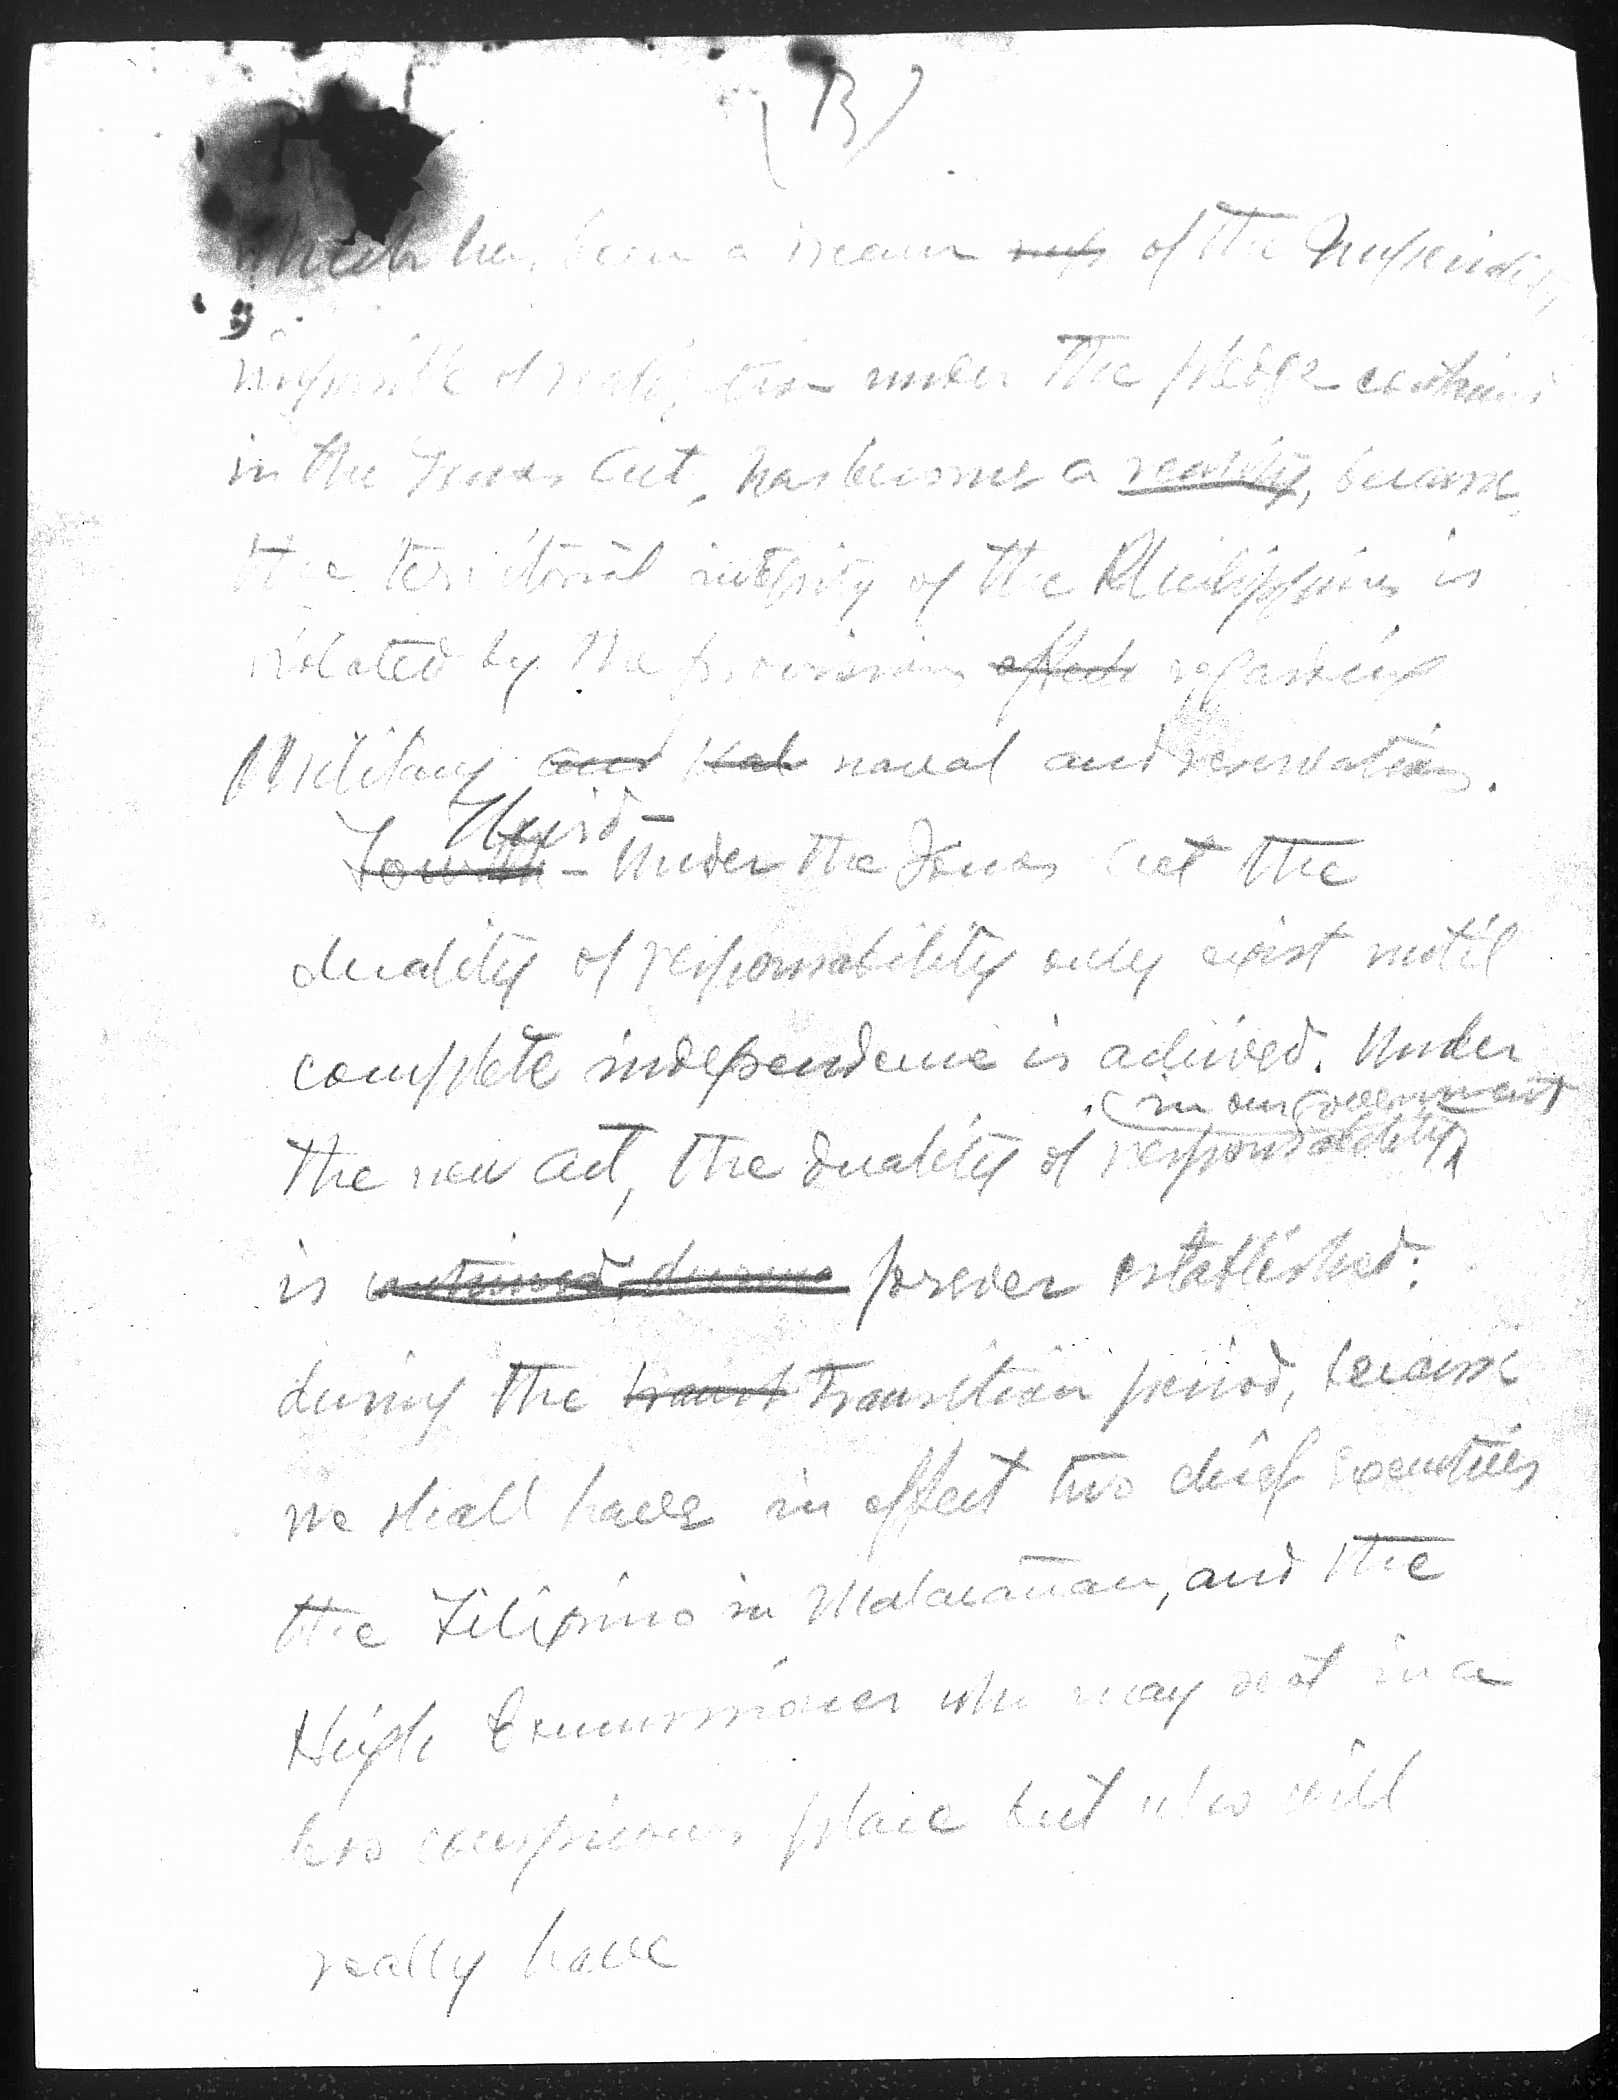 (B)
which has been a dream of the
impossible of realization under the pledge contained
in the Jones Act, has become a reality, because
the territorial integrity of the Philippines is
violated by the provisions regarding
Military and naval and reservations.
Third -
Fourth - Under the Jones Act the
duality of responsability only exist until
complete independence is achived. Under
(in our Government
the new Act, the duality of responsability
is continued during forever established:
during the transit transition period, because
we shall have in effect two chief executives
the Filipino in Malacañan, and the
High Commissioner who may seat in a
less conspicuous place but who will
really have